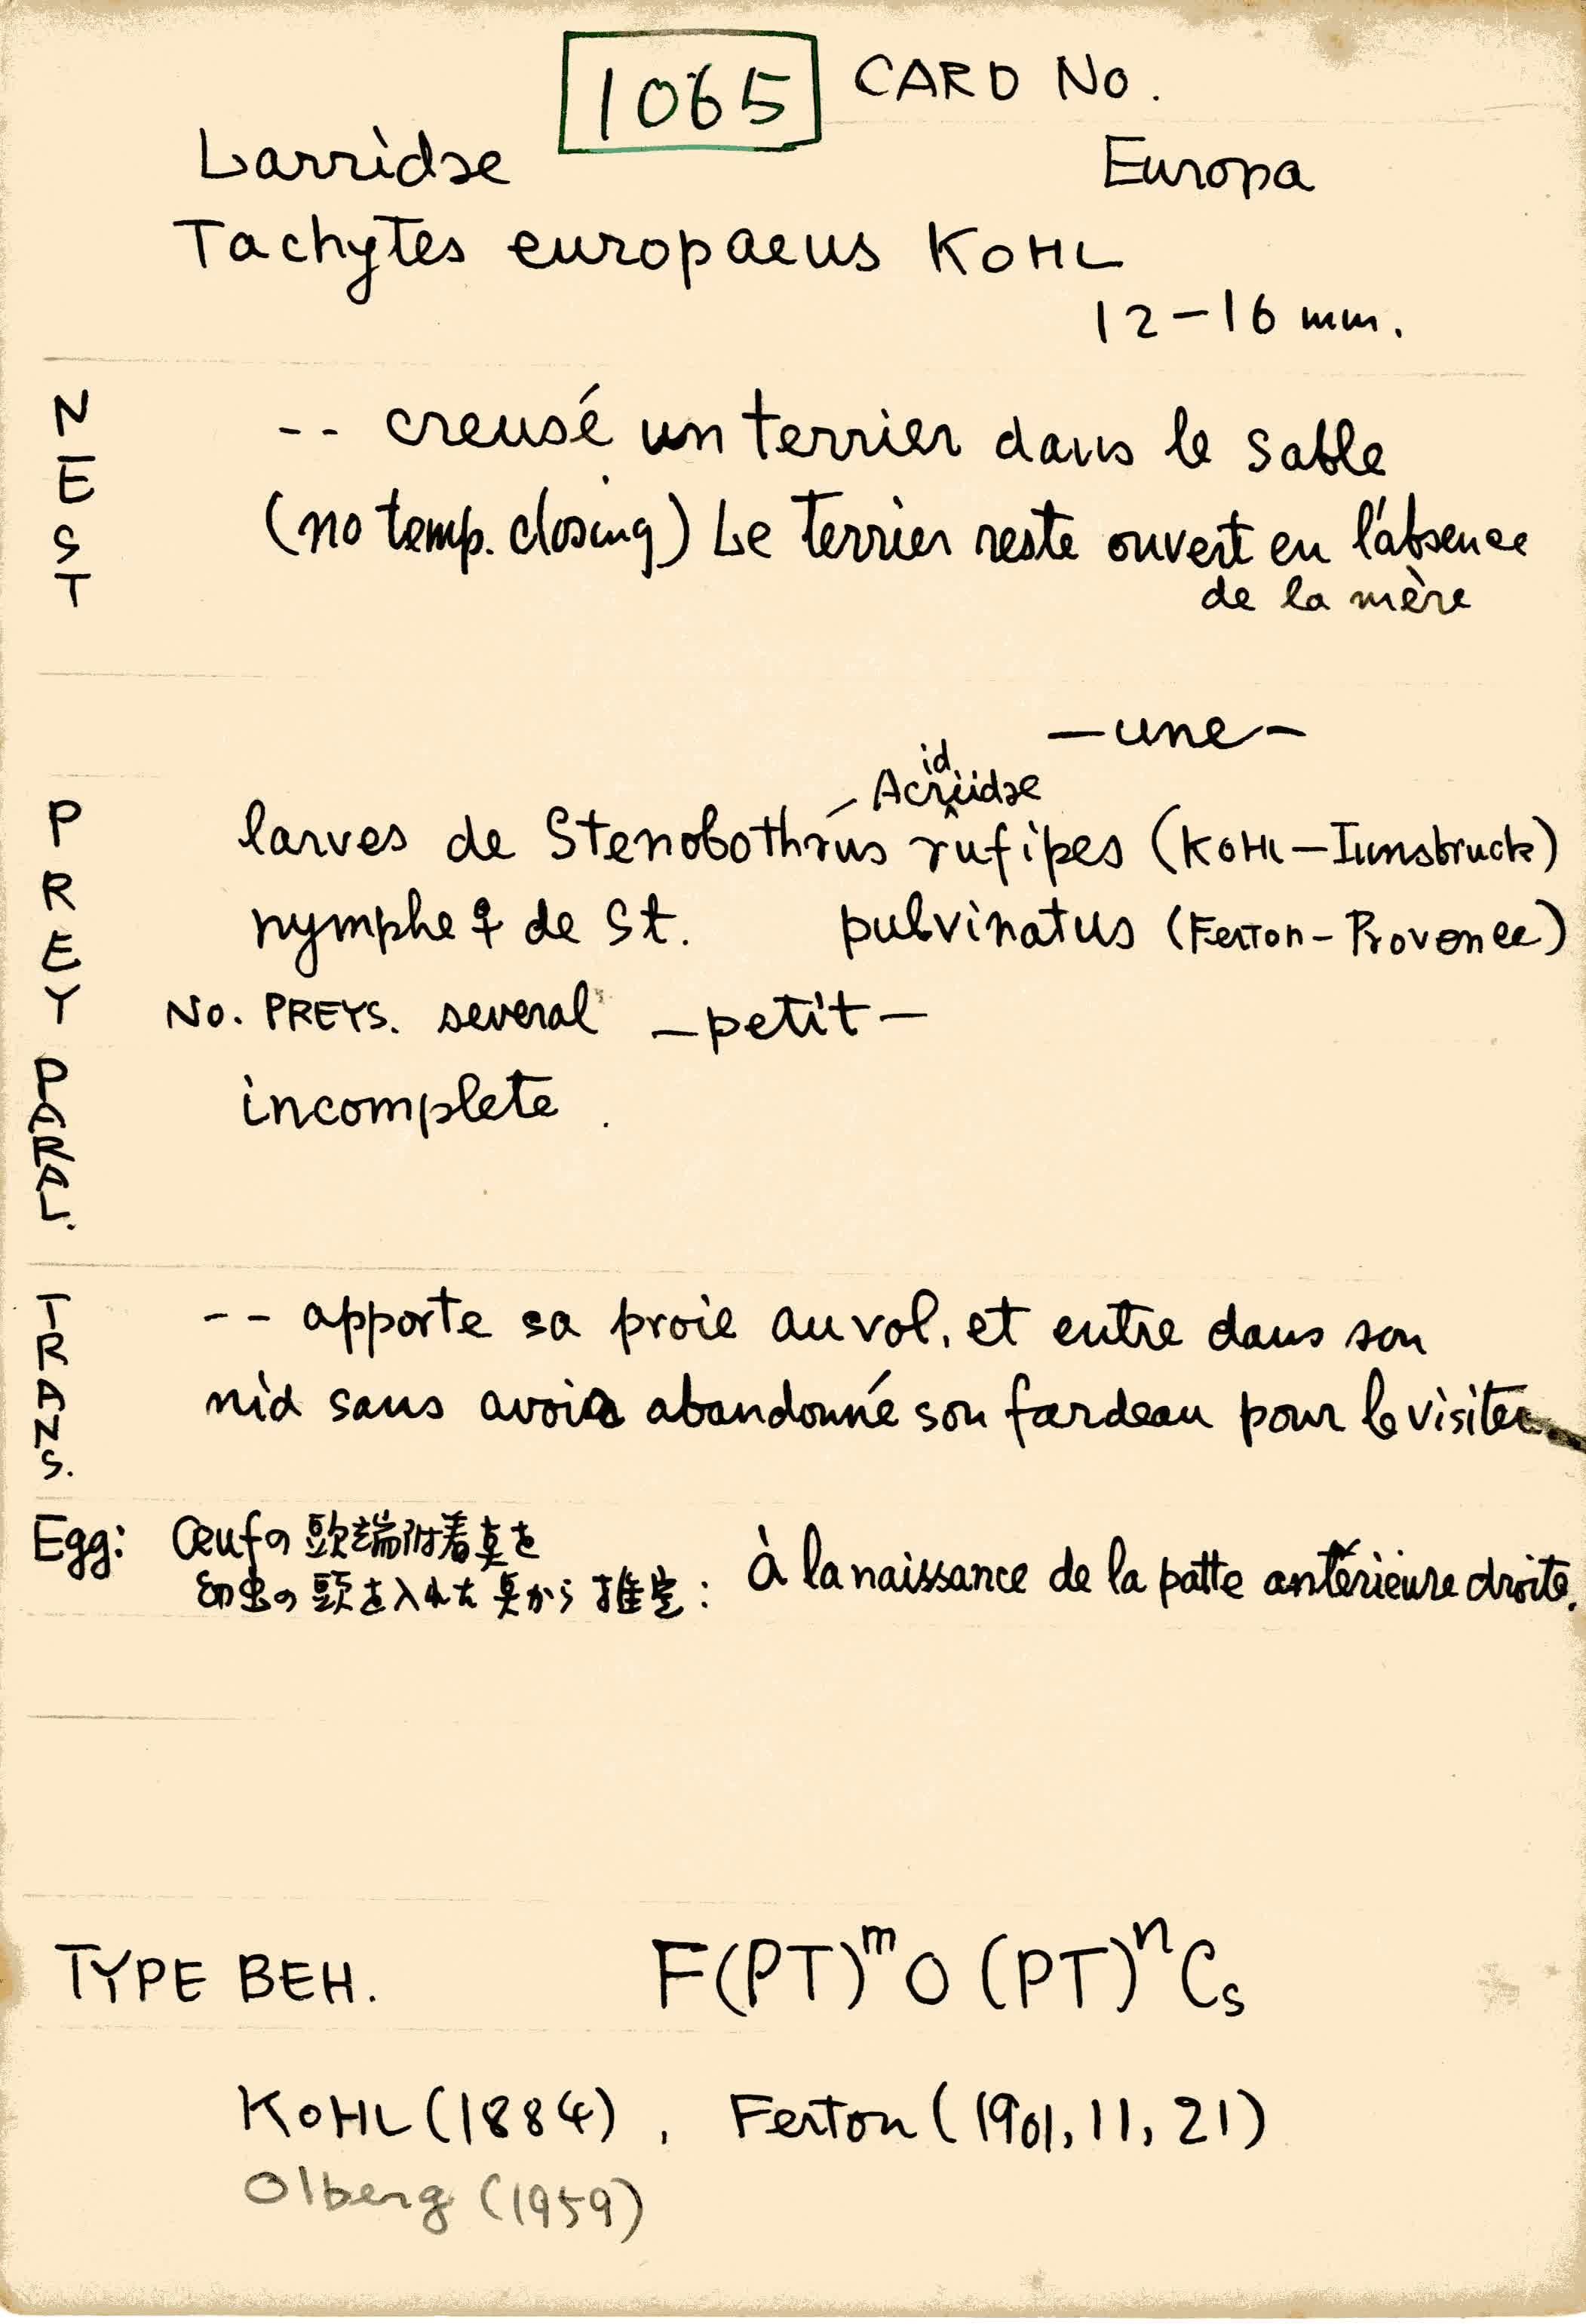 1065 CARD No.
Larridae Europa
Tachytes europaeus KOHL
12-16 mm.
NEST
-- creusé un terrier dans le sable
(no temp. closing) Le terrier reste ouvert en l'absence
de la mère
-une-
Acriididae
PREY
larves de Stenobothrus rufipes (KOHL-Innsbruck)
nymphe ♀ de St. pulvinatus (Ferton-Provence)
No. PREYS. several -petit-
PARAL.
incomplete.
TRANS.
-- apporte sa proie au vol, et entre dans son
nid sans avoir abandonné son fardeau pour le visiter
Egg: Œufの頭端附着点を
幼虫の頭を入れた点から推定: à la naissance de la patte antérieure droite.
TYPE BEH. F(PT)ᵐO(PT)ⁿCₛ
KOHL (1884), Ferton (1901, 11, 21)
Olberg (1959)